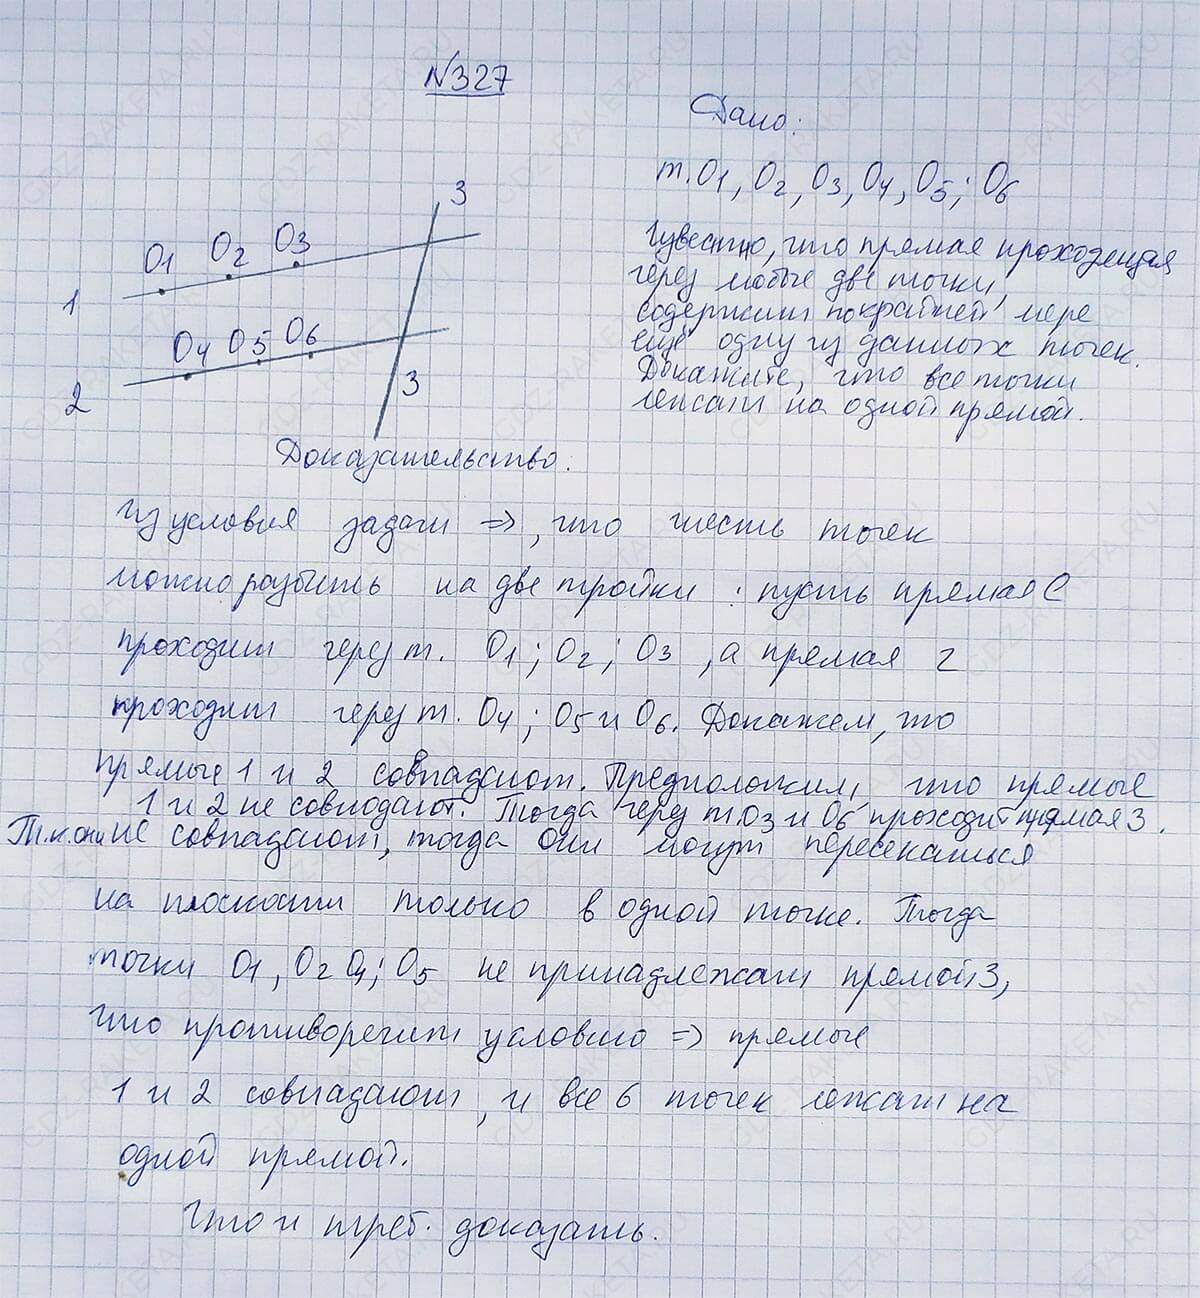 №327
Дано:
т. O1, O2, O3, O4, O5; O6
Известно, что прямая проходящая
через любые две точки,
содержит покрайней мере
ещё одну из данных точек.
Докажите, что все точки
лежат на одной прямой.
3
O1 O2 O3
1
O4 O5 O6
2
3
Доказательство:
Из условия задачи =>, что шесть точек
можно разбить на две тройки: пусть прямая
проходит через т. O1; O2; O3, а прямая 2
проходит через т. O4; O5 и O6. Докажем, что
прямые 1 и 2 совпадают. Предположим, что прямые
1 и 2 не совподают. Тогда через т. O3 и O6 проходит прямая 3.
Т.к. они не совпадают, тогда они могут пересекаться
на плоскости только в одной точке. Тогда
точки O1, O2 O4; O5 не принадлежат прямой 3,
что противоречит условию => прямые
1 и 2 совпадают, и все 6 точек лежат на
одной прямой.
Что и треб. доказать.
GDZ-RAKETA.RU